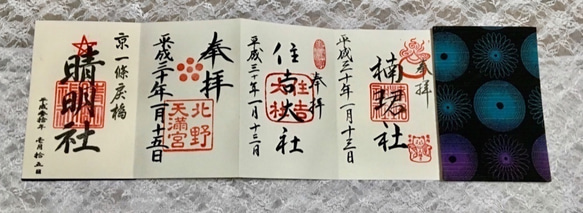 奉拝
楠珺社
平成三十年一月十三日
奉拝
住吉大社
住吉大社
平成三十年一月十三日
奉拝
北野天満宮
平成三十年一月十五日
京一條戻橋
晴明社
平成参拾年 壱月拾五日